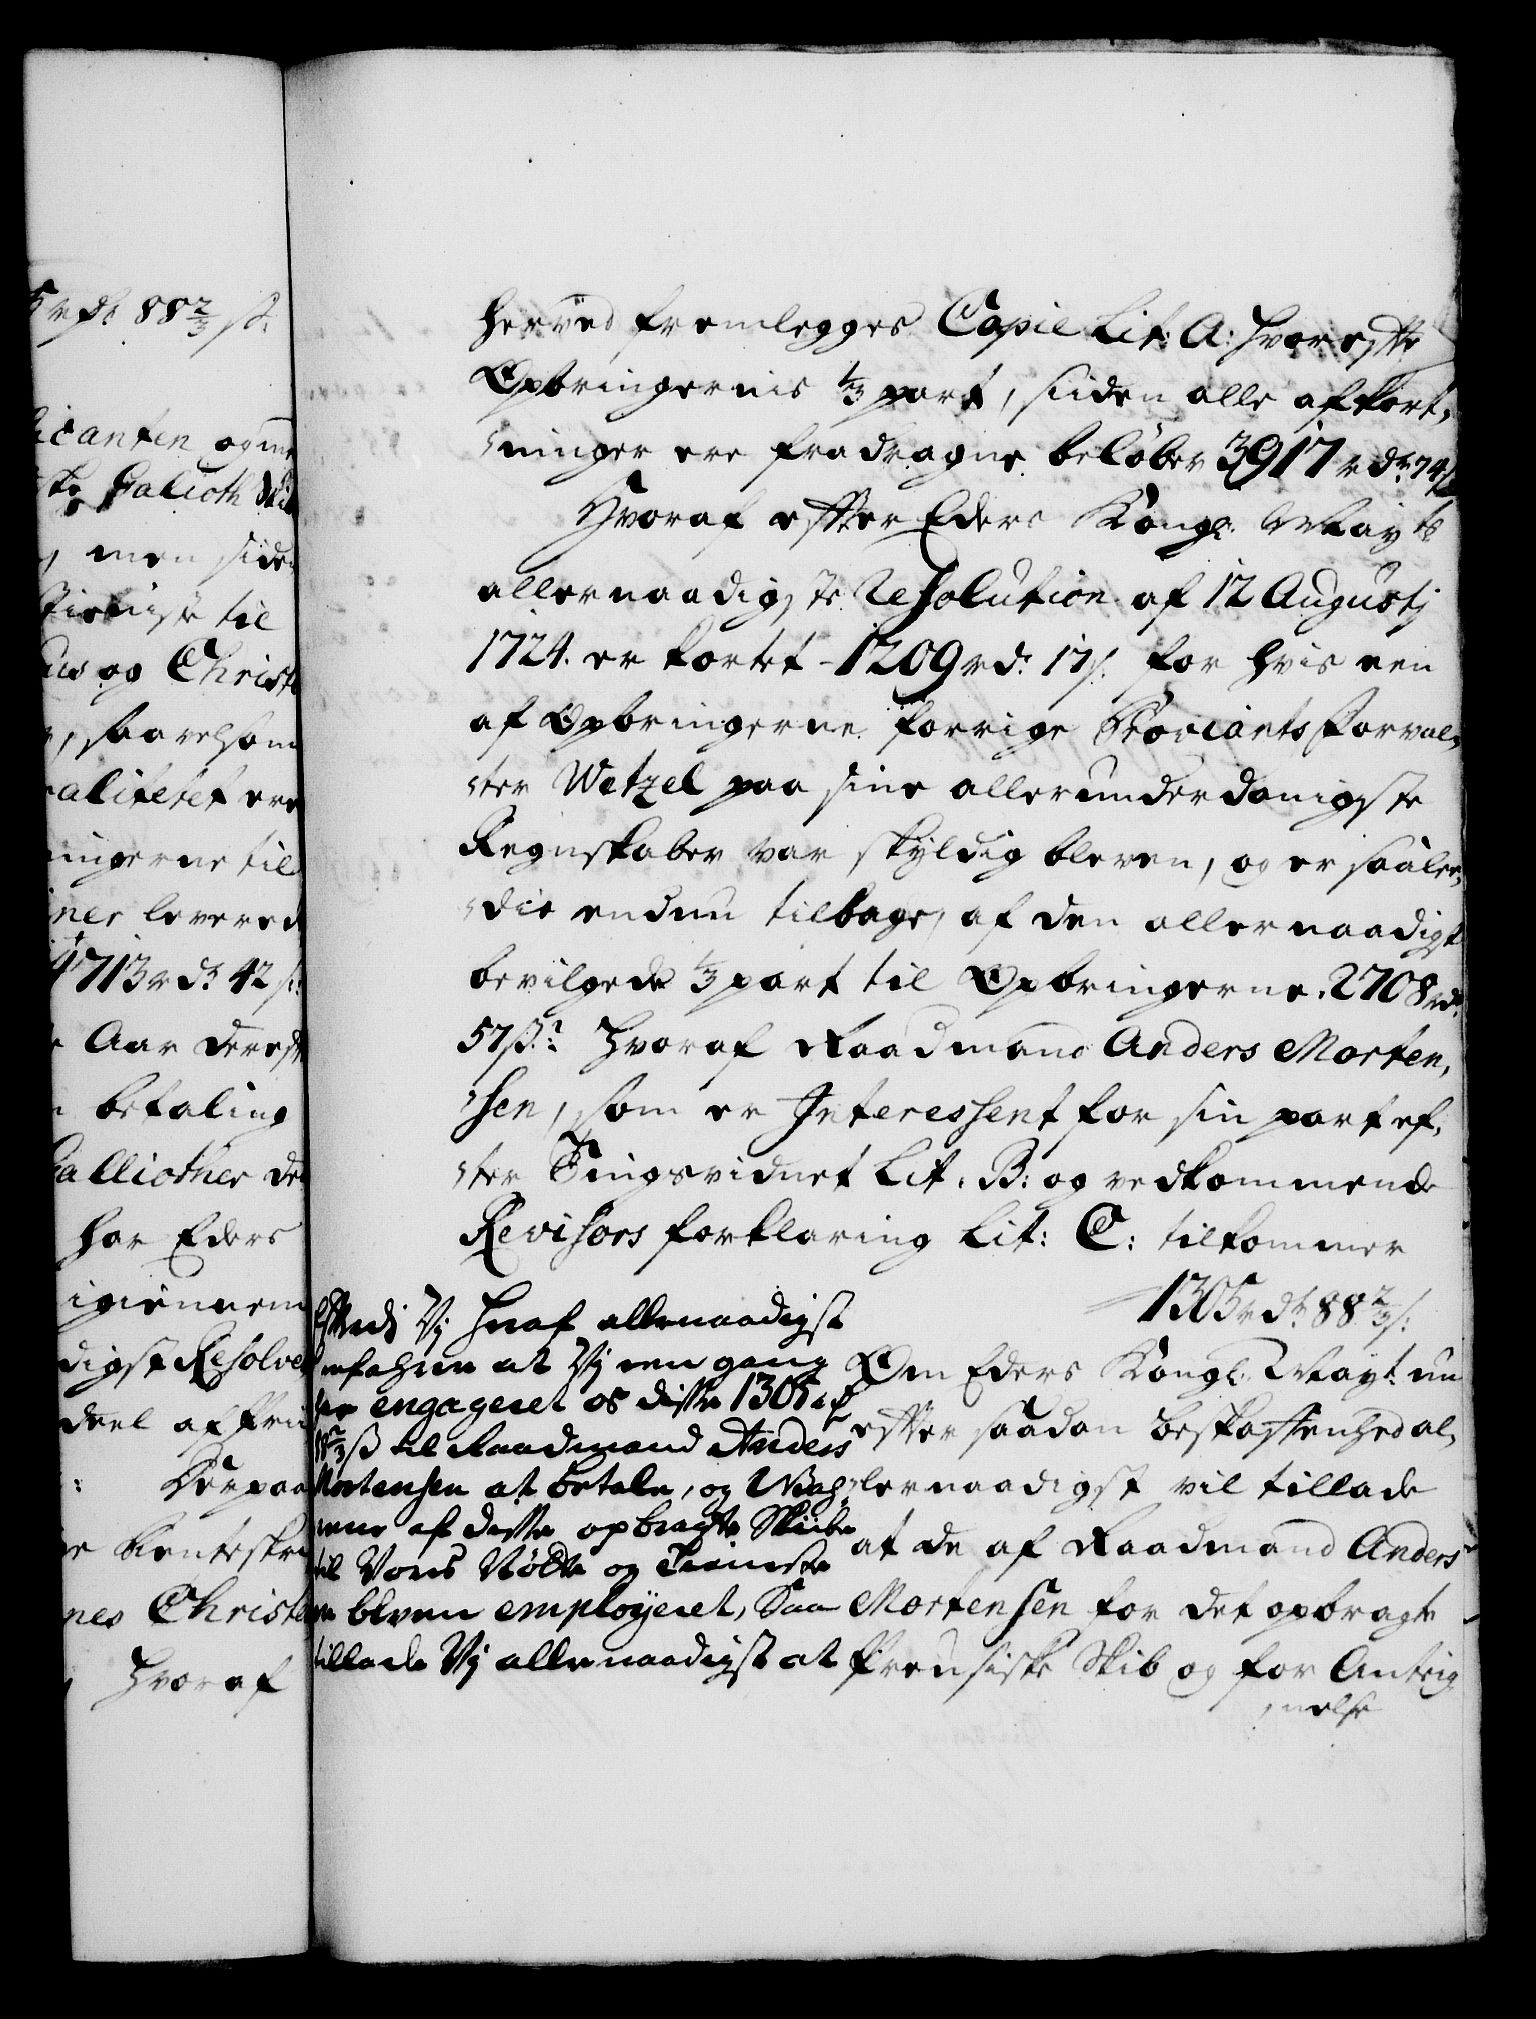 5 rdr 88 2/3 s:
icanten og
Galioth
men siden
til
og Christ
saavelsom
alitetet ere
ingerne til
ner levered
1713 rdr 42 s:
Aar
betaling
Galliother
har Eders
igiennem
digst Resolve
deel af
Renteskri
nes Christ
Hvoraf
herved fremlegges Copie Lit: A: Hvorefter
Opbringernis 1/3 part, siiden alle afkort,
,ninger ere fradragne beløber 3917 rdr 74 s
Hvoraf efter Eders Kongl: Mayts
allernaadigste Resolution af 12 Augustj
1724. er kortet - 1209 rdr 17 s: for hvis een
af Opbringerne forrige Proviantsforval,
,ter Wetzel paa sine allerunderdanigste
Regnskaber var skyldig bleven, og er saale,
,dis endnu tilbage, af den allernaadigst
bevilgede 1/3 part til Opbringerne. 2708 rdr
57 s: Hvoraf Raadmand Anders Morten,
,sen, som er Interessent for sin part ef,
,ter Tingsvidnet Lit: B: og vedkommende
Revisors forklaring Lit: C: tilkommer
1305 rdr 88 2/3 s:
Om Eders Kongl: Mayt: nu
efter saadan beskaffenhed al,
,lernaadigst vil tillade
at de af Raadmand Anders
Mortensen for det opbragte
Preusiske Skib og for Anteig
,nelse
Efterdj Vj heraf allernaadigst
erfahre at Vj een gang
har engageret os disse 1305 rd
88 2/3 s til Raadmand Anders
Mortensen at betale, og
af disse opbragte Skibe
til Vores Nøtte og Tieniste
er bleven employeret, Saa
tillade Vj allernaadigst at